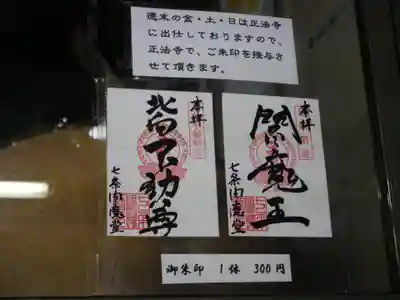 週末の金・土・日は正法寺
に出仕しておりますので、
正法寺で、ご朱印を授与さ
せて頂きます。
奉拝
北向不動尊
七条閻魔堂
奉拝
閻魔王
七条閻魔堂
御朱印 1体 300円